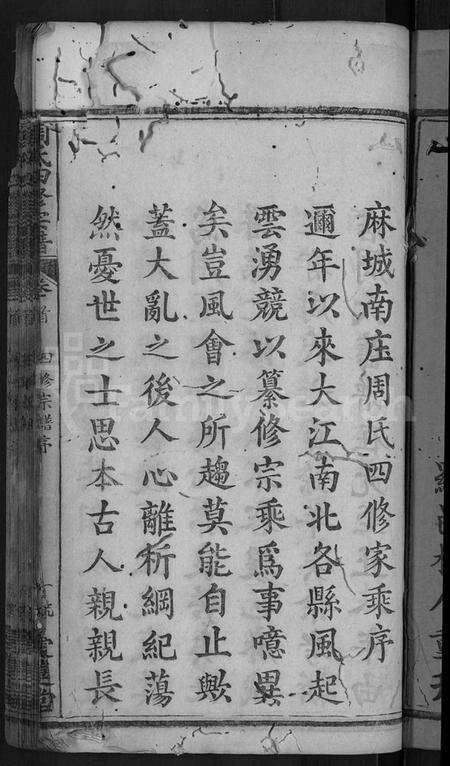 麻城南庄周氏四修家乘序
邇年以來大江南北各縣風起
雲湧競以纂修宗乘爲事噫異
矣豈風會之所趨莫能自止歟
蓋大亂之後人心離析綱紀蕩
然憂世之士思本古人親親長
四修宗譜序
FamilySearch